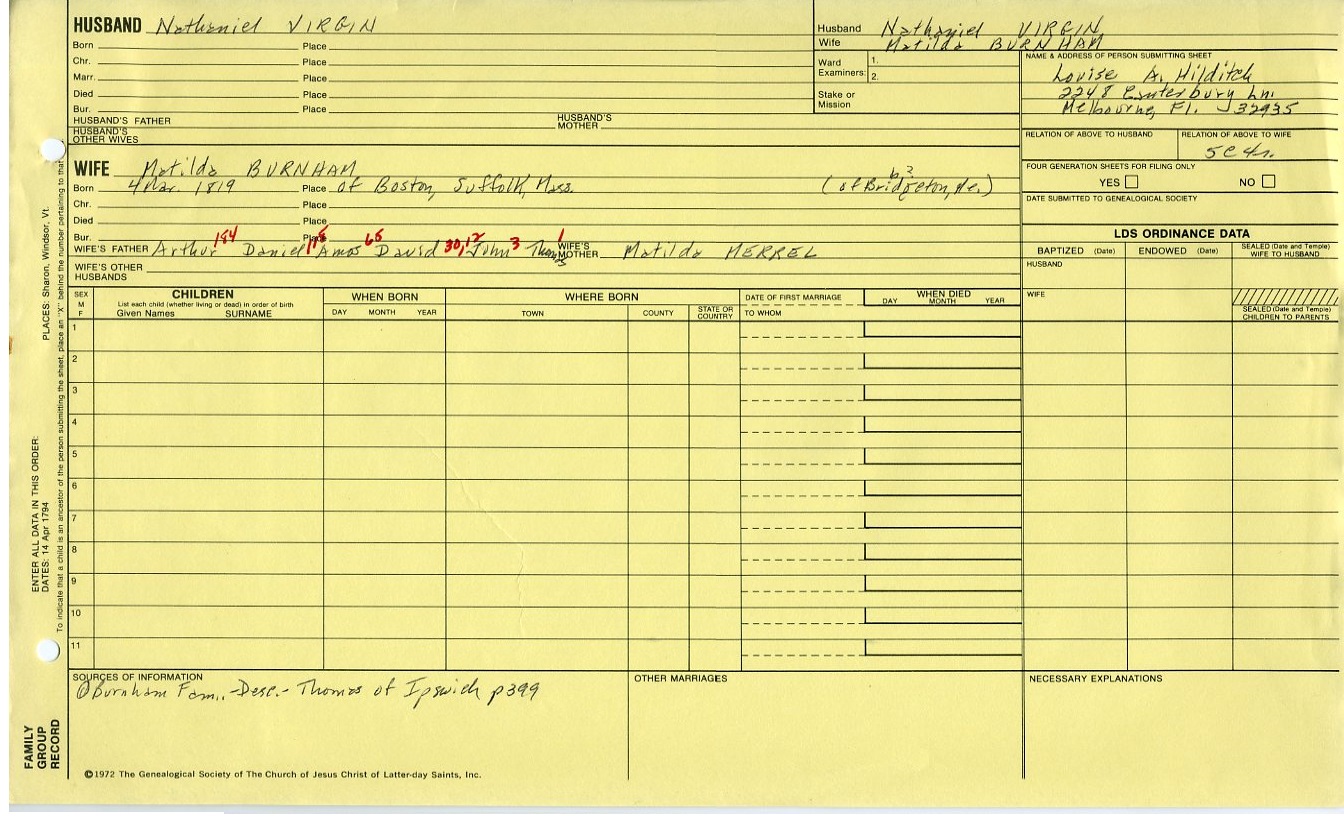 HUSBAND Nathaniel VIRGIN
Born Place
Chr. Place
Marr. Place
Died Place
Bur. Place
HUSBAND'S FATHER HUSBAND'S MOTHER
HUSBAND'S OTHER WIVES
Husband Nathaniel VIRGIN
Wife Matilda BURNHAM
Ward Examiners: 1. 2.
Stake or Mission
NAME & ADDRESS OF PERSON SUBMITTING SHEET
Louise A. Hilditch
2248 Canterbury Ln.
Melbourne, Fl. 32935
RELATION OF ABOVE TO HUSBAND RELATION OF ABOVE TO WIFE
5C4r.
FOUR GENERATION SHEETS FOR FILING ONLY
YES NO
DATE SUBMITTED TO GENEALOGICAL SOCIETY
WIFE Matilda BURNHAM
Born 4 Mar. 1819 Place of Boston, Suffolk, Mass. (of Bridgeton, Me.)
b ?
Chr. Place
Died Place
Bur. Place
184 118 65 30,12 3 1
WIFE'S FATHER Arthur Daniel Amos David John Thomas WIFE'S MOTHER Matilda MERREL
WIFE'S OTHER HUSBANDS
LDS ORDINANCE DATA
BAPTIZED (Date) ENDOWED (Date) SEALED (Date and Temple) WIFE TO HUSBAND
HUSBAND
WIFE
SEALED (Date and Temple) CHILDREN TO PARENTS
SEX M F
CHILDREN
List each child (whether living or dead) in order of birth
Given Names SURNAME
WHEN BORN
DAY MONTH YEAR
WHERE BORN
TOWN COUNTY STATE OR COUNTRY
DATE OF FIRST MARRIAGE
TO WHOM
WHEN DIED
DAY MONTH YEAR
1
2
3
4
5
6
7
8
9
10
11
SOURCES OF INFORMATION
① Burnham Fam., -Desc.- Thomas of Ipswich p399
OTHER MARRIAGES
NECESSARY EXPLANATIONS
©1972 The Genealogical Society of The Church of Jesus Christ of Latter-day Saints, Inc.
FAMILY GROUP RECORD
ENTER ALL DATA IN THIS ORDER:
DATES: 14 Apr 1794 PLACES: Sharon, Windsor, Vt.
To indicate that a child is an ancestor of the person submitting the sheet, place an "X" behind the number pertaining to that